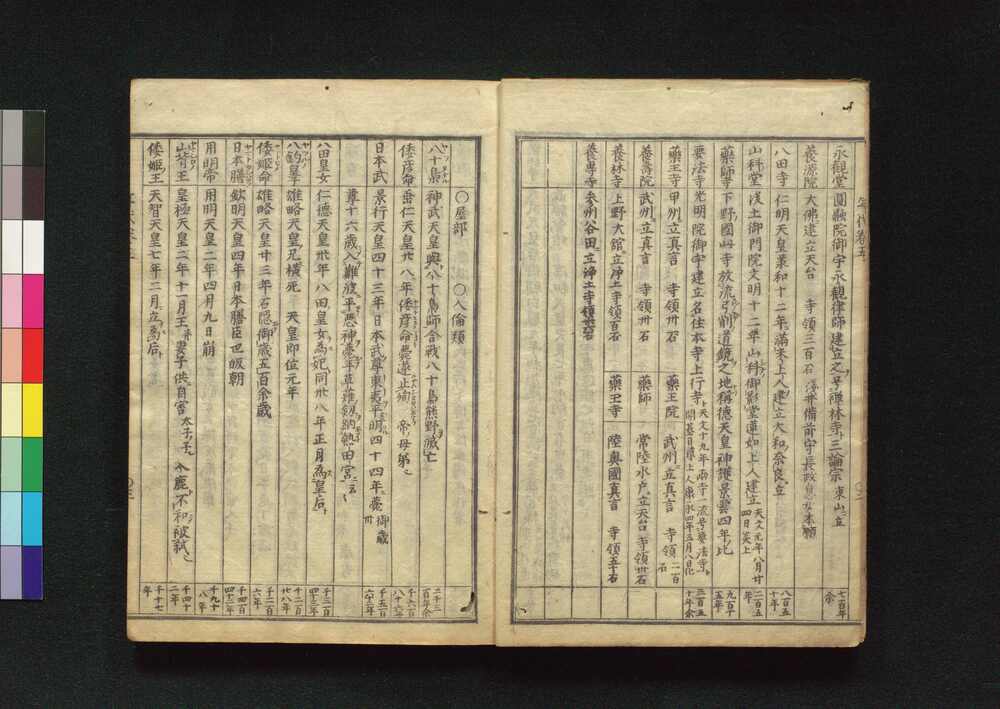 永観堂 圓融院御宇永観律師建立之号禅林寺三論宗 東山ニ立 七百年余
養源院 大佛ニ建立天台 寺領三百石 浅井備前守長政息女本願
八田寺 仁明天皇兼和十二年満米上人建立大和ノ奈良ニ立 八百五十年
山科堂 後土御門院文明十二年山科御影堂蓮如上人建立 天文元年八月廿四日炎上 二百五年
薬師寺 下野國此寺放流弓削道鏡之地稱德天皇神護景雲四年ノ比 九百十五年
要法寺 光明院御宇建立名住本寺上行寺 天文十九年両寺一流号要法寺 三百五十年余
薬王寺 甲州ニ立真言 寺領卅石 薬王院 武州ニ立真言 寺領二百石
養壽院 武州ニ立真言 寺領卅石 薬師 常陸水户ニ立天台 寺領卅石
養林寺 上野大舘ニ立浄土 寺領百石 薬王寺 陸奥國真言 寺領五十石
養專寺 参州谷田ニ立浄土 寺領
〇屋部 〇人倫類
八十梟 神武天皇與八十梟師合戦八十梟熊野ニ滅亡 二千三百年余
倭彦命 垂仁天皇廿八年倭彦命薨遂止殉 帝ノ母弟 千六百八十六年
日本武 景行天皇四十三年日本武尊東夷平明四十四年ニ薨 御歳卅 千五百六十三年
尊十六歳入難波平悪神毫年草薙釼納熱田宮ニ云々
八田皇女 仁德天皇卅年八田皇女為妃同卅八年正月為皇后 千三百四十三年
八釣皇 雄略天皇ノ兄横死 天皇即位元年 千二百廿八年
倭姫命 雄略天皇廿三年石隠御歳五百余歳 千二百六年
日本膳 欽明天皇四年日本膳臣也皈朝 千四百四十三年
用明帝 用明天皇二年四月九日崩 千九十八年
山背王 皇極天皇二年十一月王并妻子供自害 太子ノ子 入鹿ト不和被弑 千四十二年
倭姫王 天智天皇七年二月ニ立為后 千十七年